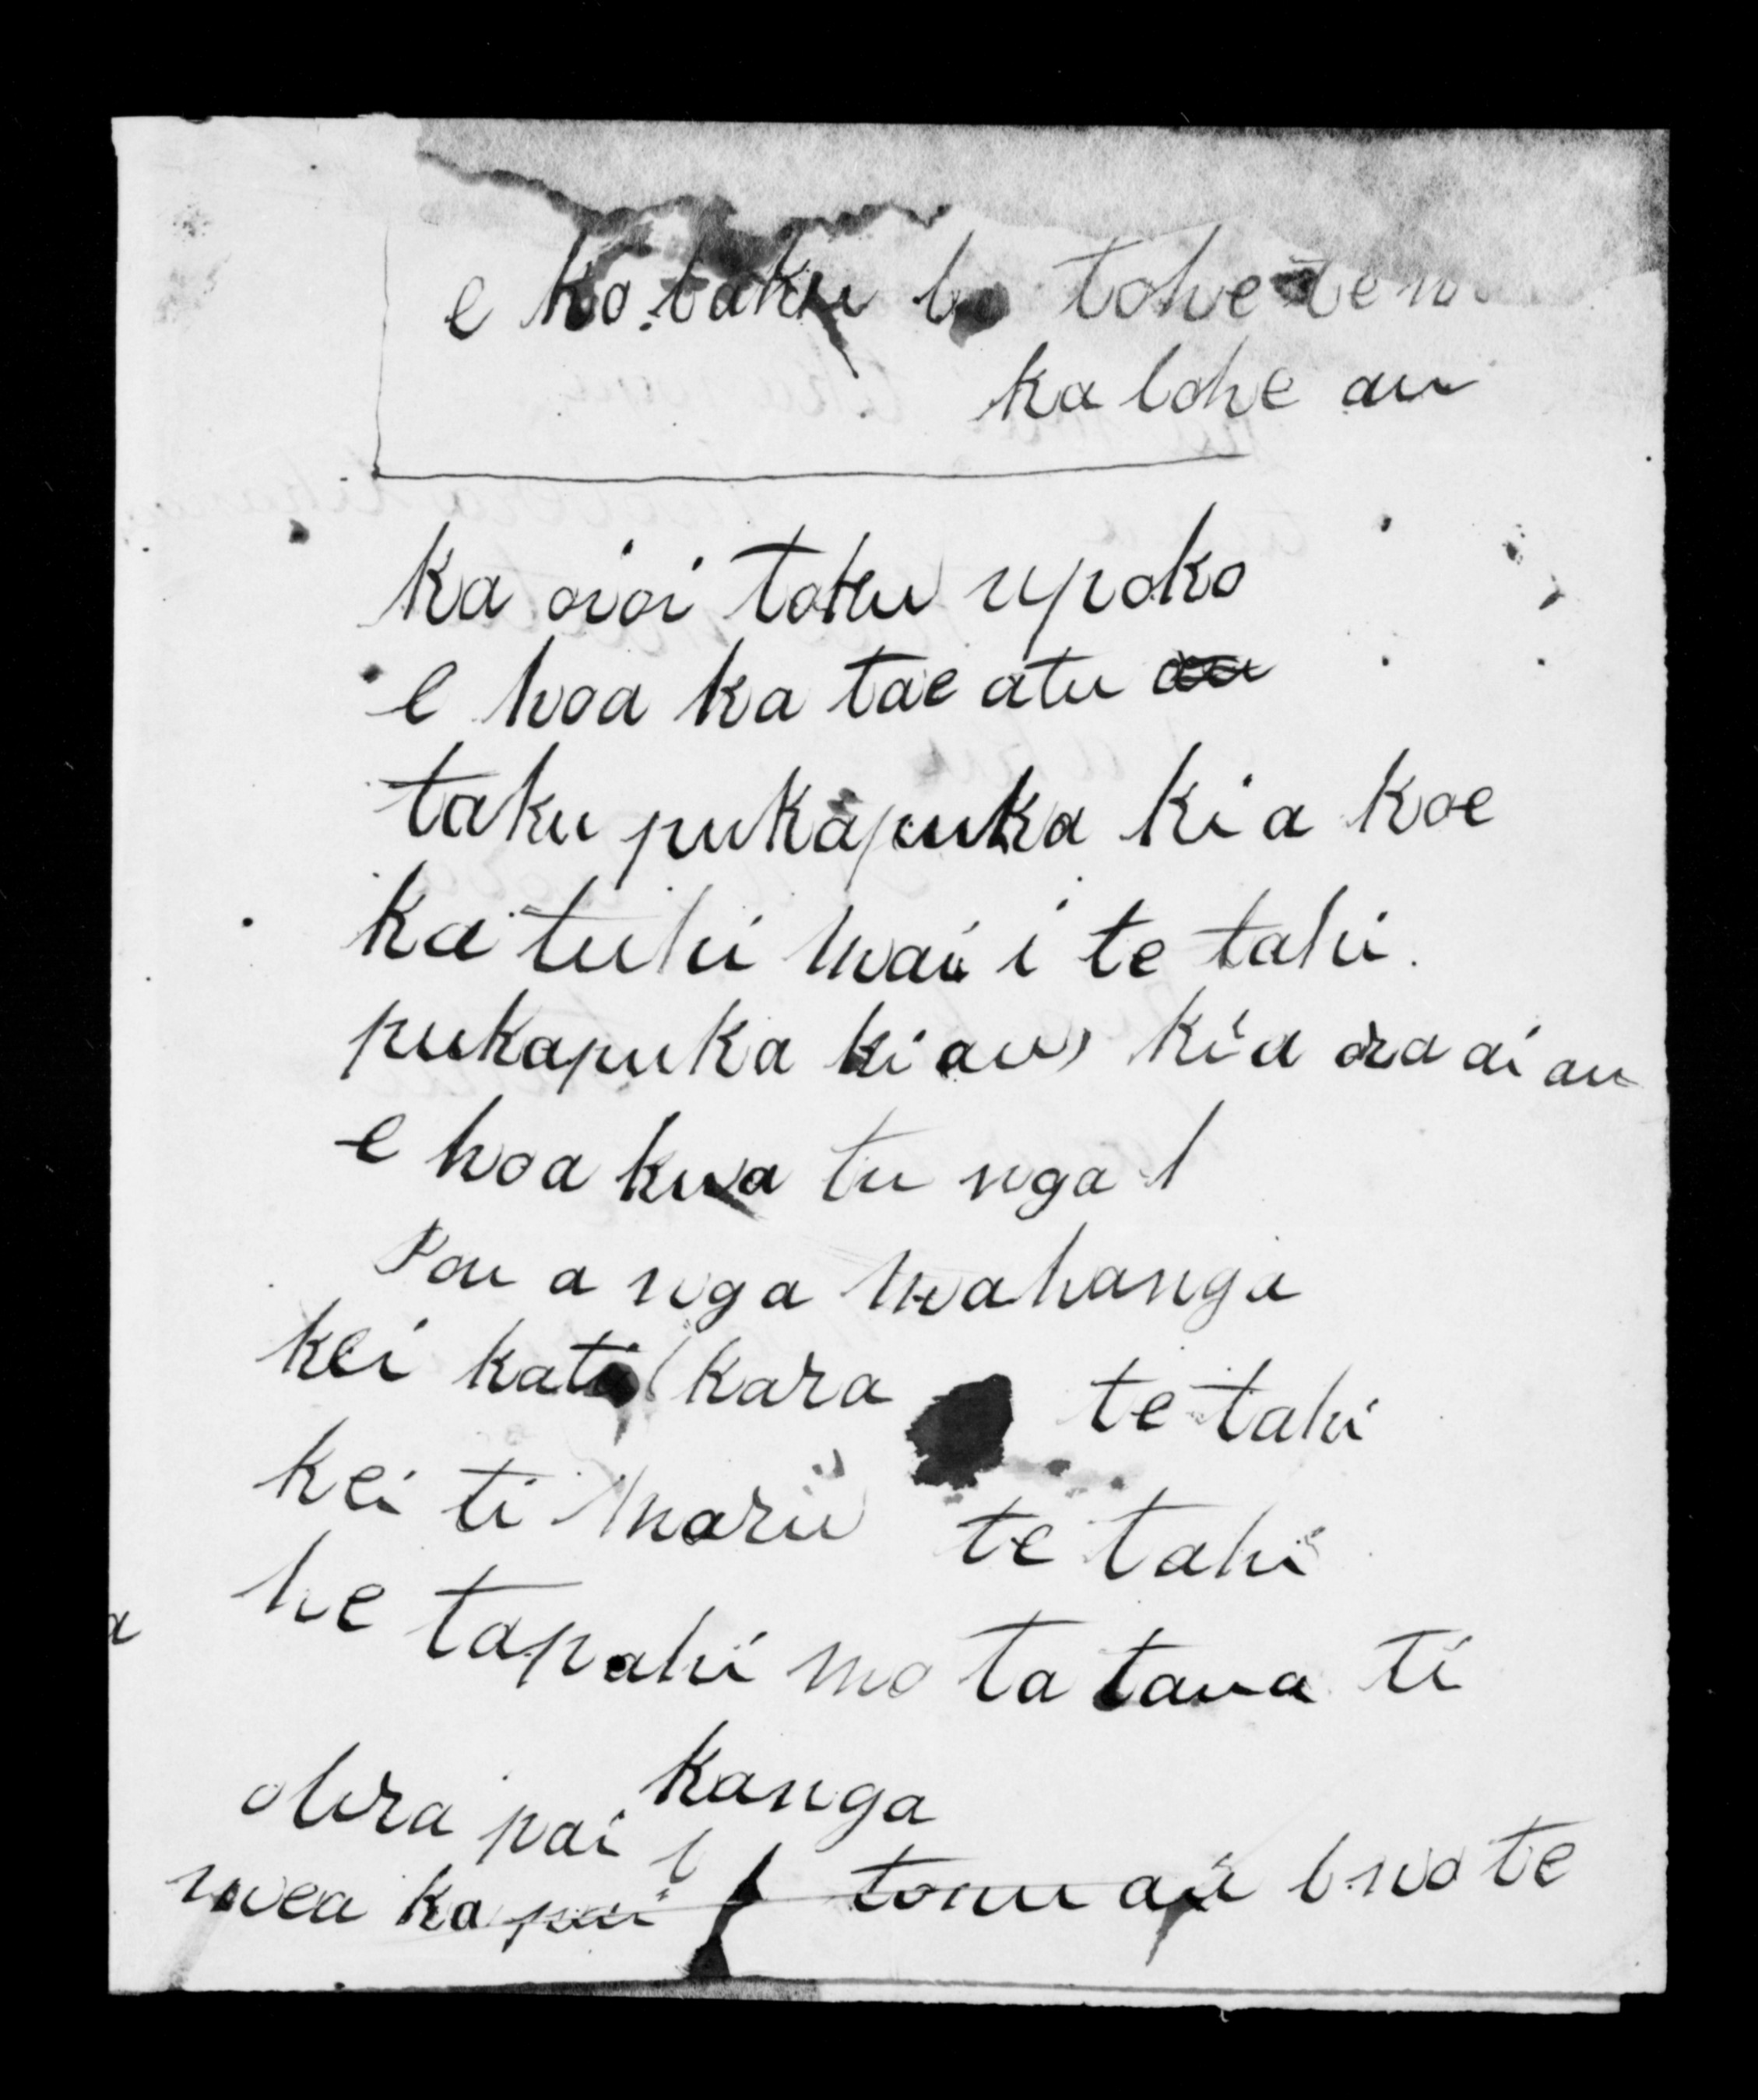 e ko taku to tohe te
ka tohe au
ka oioi toku upoko
e hoa ka tae atu au
taku pukapuka ki a koe
ka tuhi mai i te tahi.
pukapuka ki au kia ora ai au
e hoa kua tu nga
Pou a nga mahanga
kei kati kara te tahi
kei ti maru te tahi
he tapahi mo ta taua ti
kanga
otira pai
mea ka pai tonu ai i no te